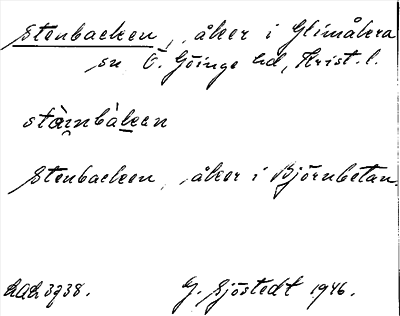 Stenbacken, åker i Glimåkra
sn Ö. Göinge hd, Krist. l.
stàinbàken
Stenbacken, åker i Björnbetan.
LAL 3938. G. Sjöstedt 1946.